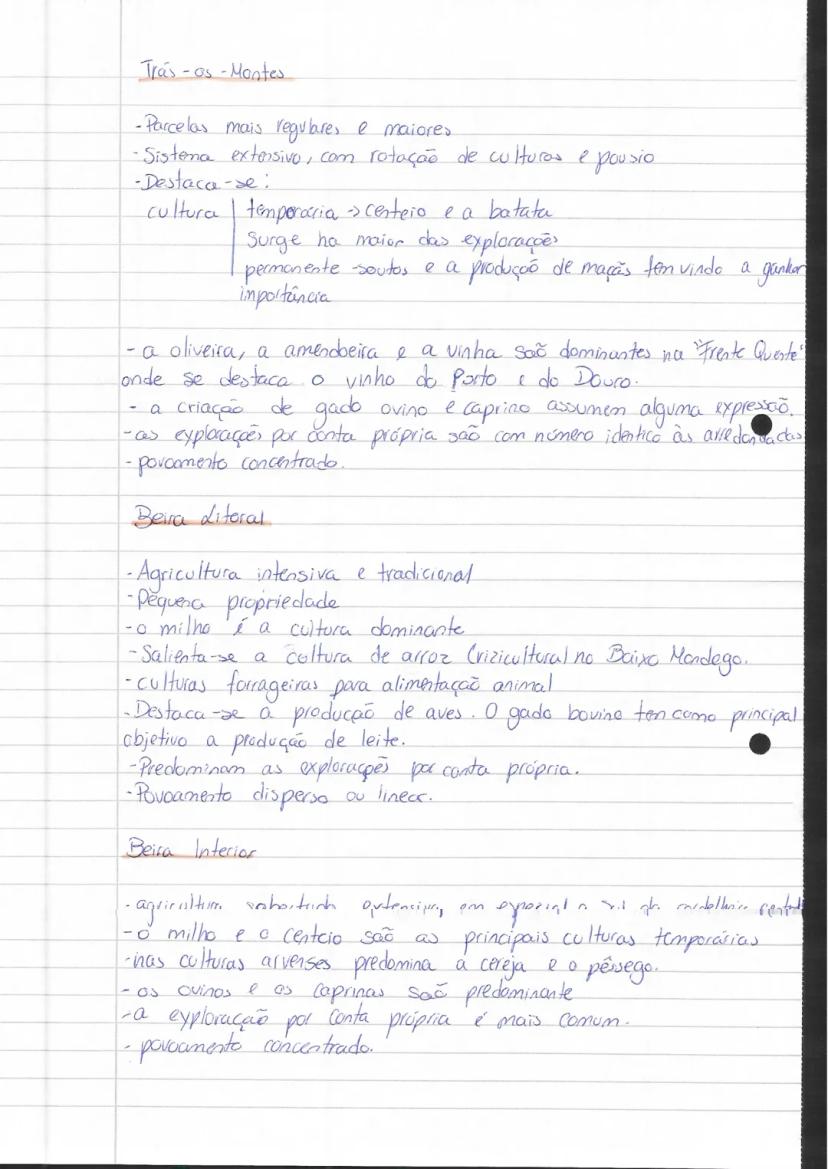 Trás-os-Montes
- Parcelas mais regulares e maiores
- Sistema extensivo, com rotação de culturas e pousio
- Destaca-se:
cultura | temporária → centeio e a batata
Surge na maior das explorações
permanente - soutos e a produção de maçãs tem vindo a ganhar
importância
- a oliveira, a amendoeira e a vinha saõ dominantes na "Frente Quente"
onde se destaca o vinho do Porto e do Douro.
- a criação de gado ovino e caprino assumem alguma expressão.
- as explorações por conta própria são com número identico às
- povoamento concentrado.
Beira Litoral
- Agricultura intensiva e tradicional
- Pequena propriedade
- o milho é a cultura dominante
- Salienta-se a cultura de arroz (rizicultura) no Baixo Mondego.
- culturas forrageiras para alimentação animal
- Destaca-se a produção de aves. O gado bovino tem como principal
objetivo a produção de leite.
- Predominam as explorações por conta própria.
- Povoamento disperso ou linear.
Beira Interior
- agricultura
- o milho e o centeio saõ as principais culturas temporárias
- nas culturas arvenses predomina a cereja e o pêssego.
- os ovinos e os caprinas saõ predominante
- a exploração por conta própria é mais comum.
- povoamento concentrado.